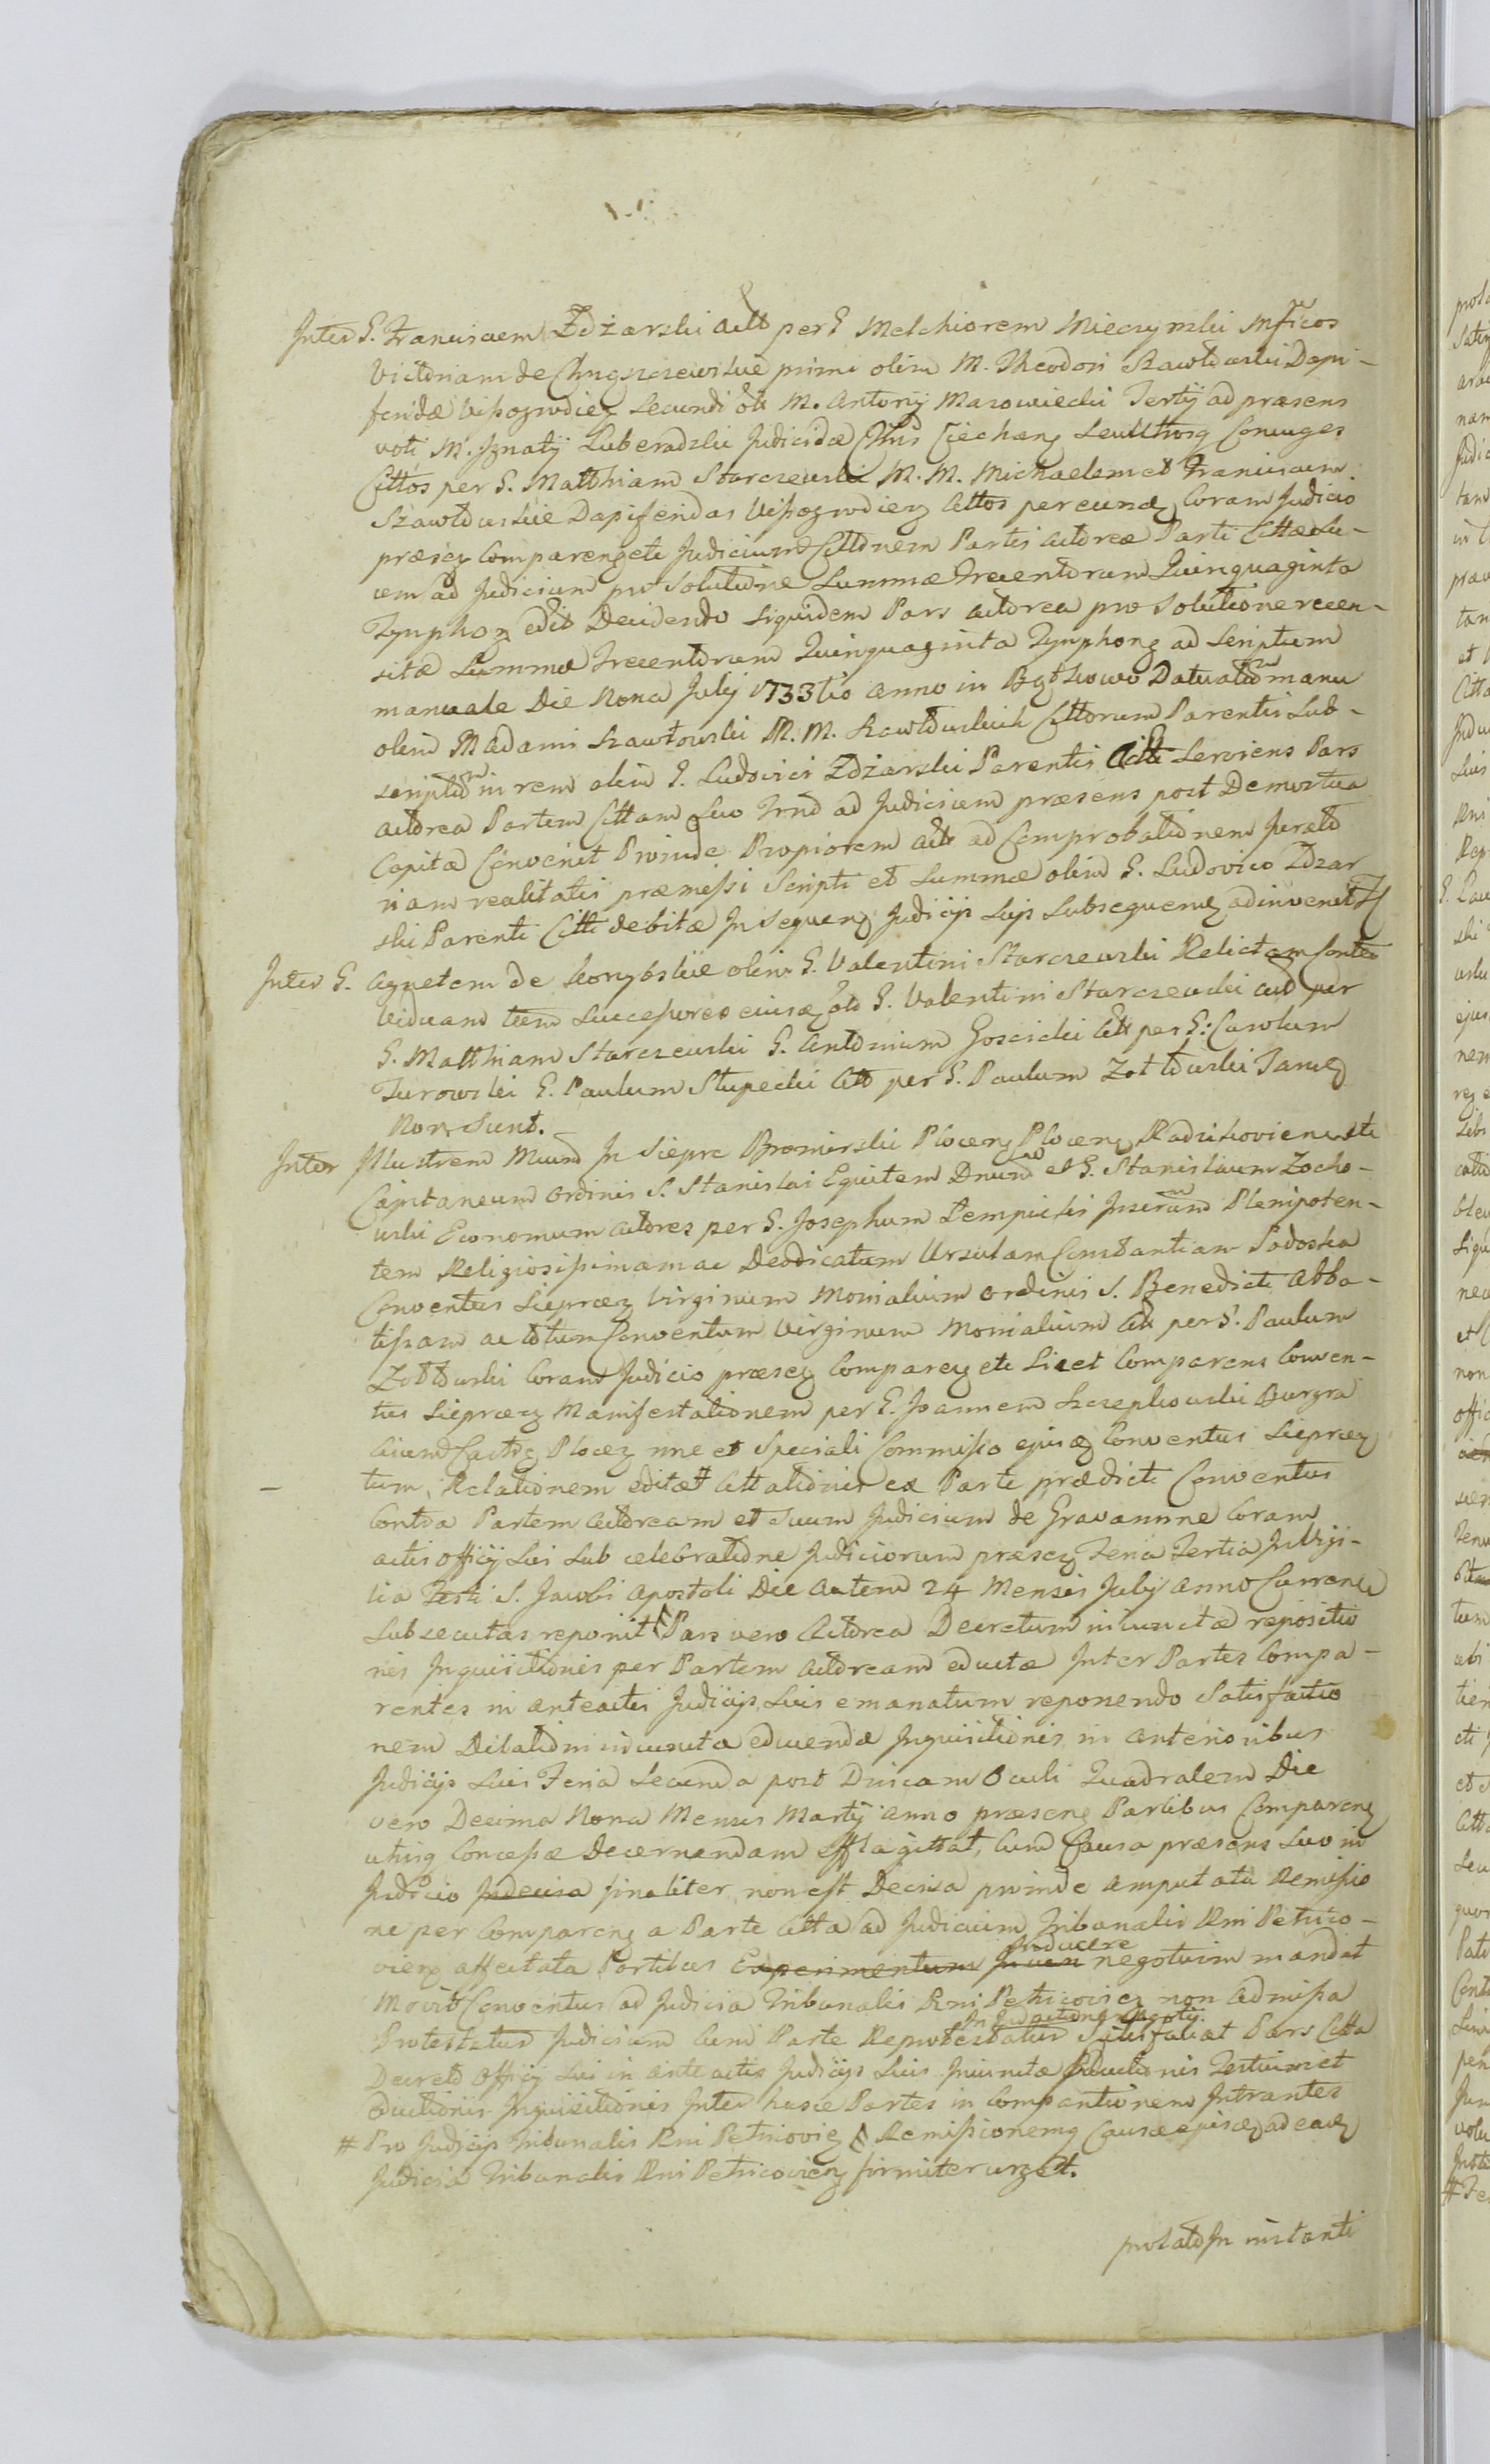 Inter G. Franciscum Zdżarski Actt per G Melchiorem Mieczynski Mficos
Victoriam de primi olim M. Theodori Szawłowski Dapi-
feridæ Vissogrodien Secundi olim M. Antonij Mazowiecki Tertij ad præsens
voti M. Ignatij Luberadzki Judicidæ Ciechan Conjuges
Cittos per G. Matthiam Starczewski M. M. Michaelem et Franciscum
Szawłowskie Dapiferidas Vissogrodien Cittos per eund Coram Judicio
præsen Comparen etc Judicium Cittonem Partis Actoreæ Parti Cittæ Lu-
cem ad Judicium pro Solutione Summæ Trecentorum Quinquaginta
Tynphon edit Decidendo Siquidem Pars Actorea pro Solutione recen-
sitæ Summæ Trecentorum Quinquaginta Tynphong ad Scriptum
manuale Die Nona Julij 1733tio Anno in Datuatum manu
olim M Adami Szawłowski M. M. Szawłowskich Cittorum Parentis Sub-
scriptum in rem olim G. Ludovici Zdżarski Parentis Actt Serviens Pars
Actorea Partem Cittam Suo Trno ad Judicium præsens post Demortua
Capita Convenit Proinde Propiorem Actt ad Comprobationem Jurato
riam realitatis præmissi Scripti et Summæ olim G. Ludovico Zdzar
ski Parenti Citti debitæ In Sequen Judicijs Suis Subsequen adinvenit
Inter G. Agnetem de olim G. Valentini Starczewski Relictam Contes
Viduam tum Successores ejusd olim G. Valentini Starczewski Act per
G. Matthiam Starczewski G. Antonium Goscicki Citt per G: Carolum
Turowski G. Paulum Słupecki Citt per G. Paulum Zołtowski Tanq
Non Sunt.
Inter Illustrem Mcum In Sieprc Bromirski Plocen Plocen Radzikovien etc
Capitaneum Ordinis S. Stanislai Equitem Dnum et G. Stanislaum Zocho-
wski Economum Actores per G. Josephum Lempicki Inserum Plenipoten-
tem Religiosissimam ac Deodicatam Ursulam Constantiam Podoska
Conventus Sieprcen Virginum Monialium Ordinis S. Benedicti Abba-
tissam ac totum Conventum Virginum Monialium Citt per G. Paulum
Zołtowski Coram Judicio præsen Comparen etc Licet Comparens Conven-
tus Sieprcen Manifestationem per G. Joannem Szczepkowski Burgra
bium Castr Plocen nne et Speciali Commisso ejusd Conventus Sieprcen
tum Relationem editæ Cittationis ex Parte prædicti Conventus
Contra Partem Actoream et Suum Judicium de Gravamine Coram
actis Officij Sui Sub celebratione Judiciorum præsen Feria Tertia In Vigi-
lia Festi S. Jacobi Apostoli Die Autem 24 Mensis Julij Anno Curren
Subsecutas reponit Pars vero Actorea Decretum injunctæ repositio
nis Inquisitionis per Partem Actoream eductæ Inter Partes Compa-
rentes in anteactis Judicijs Suis emanatum reponendo Satisfactio
nem Dilationi injuncta educendæ Inquisitionis in anterioribus
Judicijs Suis Feria Secunda post Dnicam Oculi Quadralem Die
vero Decima Nona Mensis Martij Anno præsen Partibus Comparen
utrisq Concessæ Decernendam efflagittat, Cum Causa præsens Suo in
Judicio Indecisa finaliter non est Decisa proinde amputata Remissio
ne per Comparen a Parte Citta ad Judicium Tribunalis Rni Petrico-
vien affectata Partibus Experimentum Inducere negotium mandat
Movit Conventus ad Judicia Tribunalis Rni Petricovien non admissa
Protestatur Judicium Cum Parte Reprotestatur Satisfaciat Pars Citta
Decreto Officij Sui in Ante actis Judicijs Suis Injunctæ Inductionis Testium et
eductionis Inquisitionis Inter hasce Partes in Comparitionem Intrantes
# Pro Judicijs Tribunalis Rni Petricovien Remissionemq Causæ ejusd ad ead
Judicia Tribunalis Rni Petricovien firmiter urget.
prolato In instanti